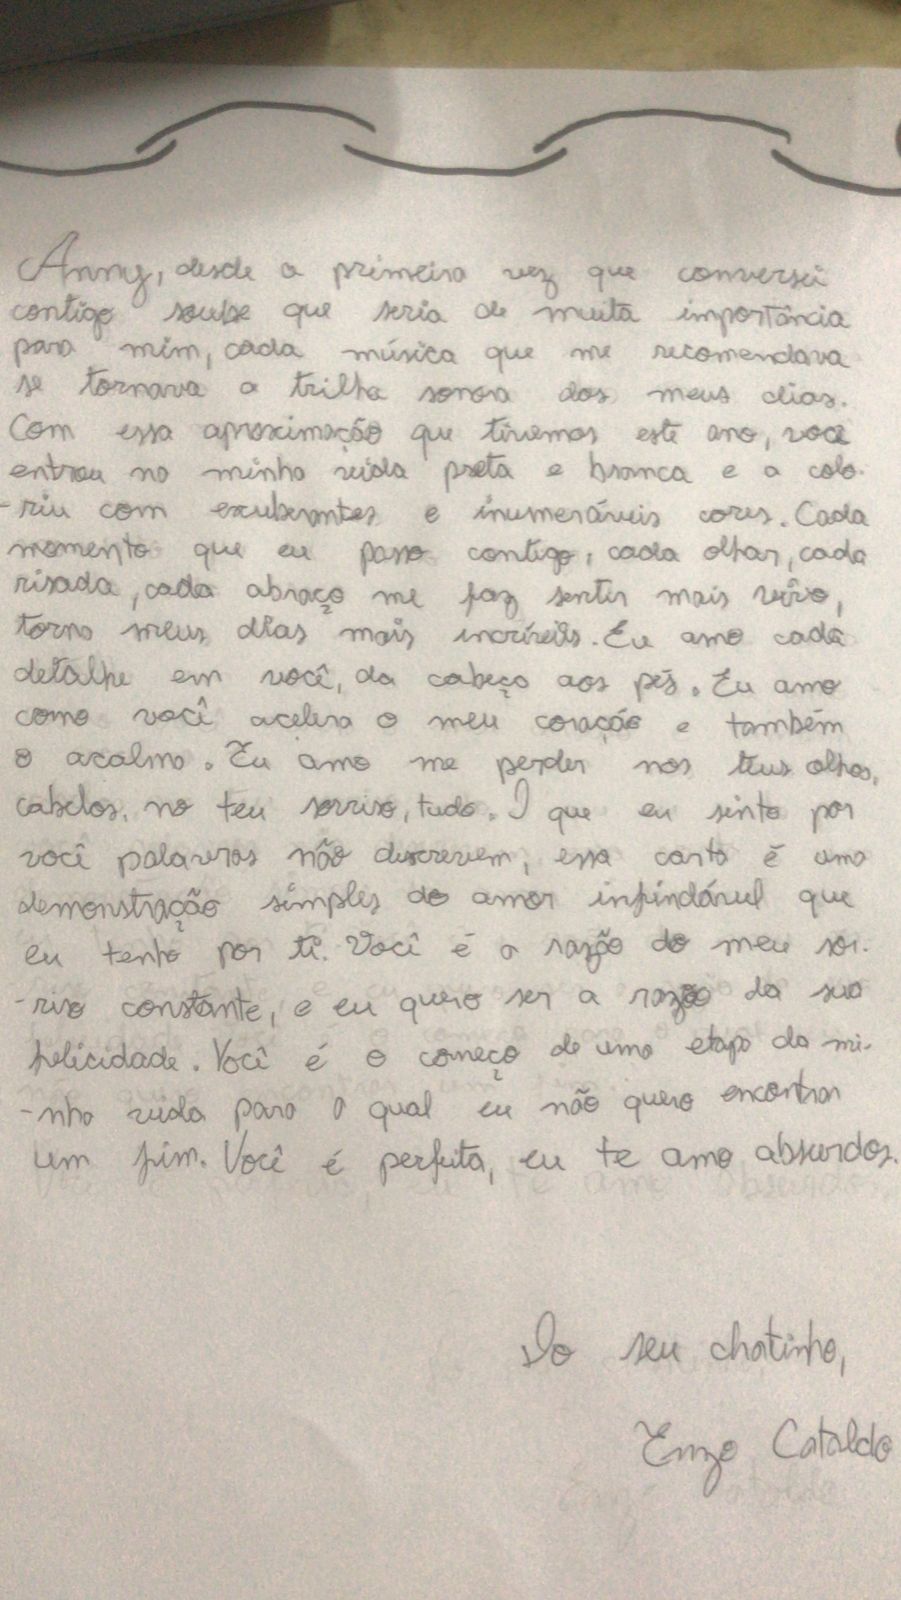 Anny, desde a primeira vez que conversei
contigo soube que seria de muita importância
para mim, cada música que me recomendava
se tornava a trilha sonora dos meus dias.
Com essa aproximação que tivemos este ano, você
entrou na minha vida preta e branca e a colo-
-riu com exuberantes e inumeráveis cores. Cada
momento que eu passo contigo, cada olhar, cada
risada, cada abraço me faz sentir mais vivo,
torna meus dias mais incríveis. Eu amo cada
detalhe em você, da cabeça aos pés. Eu amo
como você acelera o meu coração e também
o acalma. Eu amo me perder nos teus olhos,
cabelos, no teu sorriso, tudo. O que eu sinto por
você palavras não descrevem, essa carta é uma
demonstração simples do amor infindável que
eu tenho por ti. Você é a razão do meu sor-
-riso constante, e eu quero ser a razão da sua
felicidade. Você é o começo de uma etapa da mi-
-nha vida para a qual eu não quero encontrar
um fim. Você é perfeita, eu te amo absurdos.
Do seu chatinho,
Enzo Cataldo